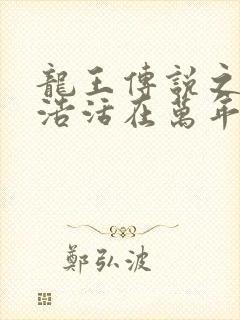 龍王傳說之
浩活在萬年
鄭弘波